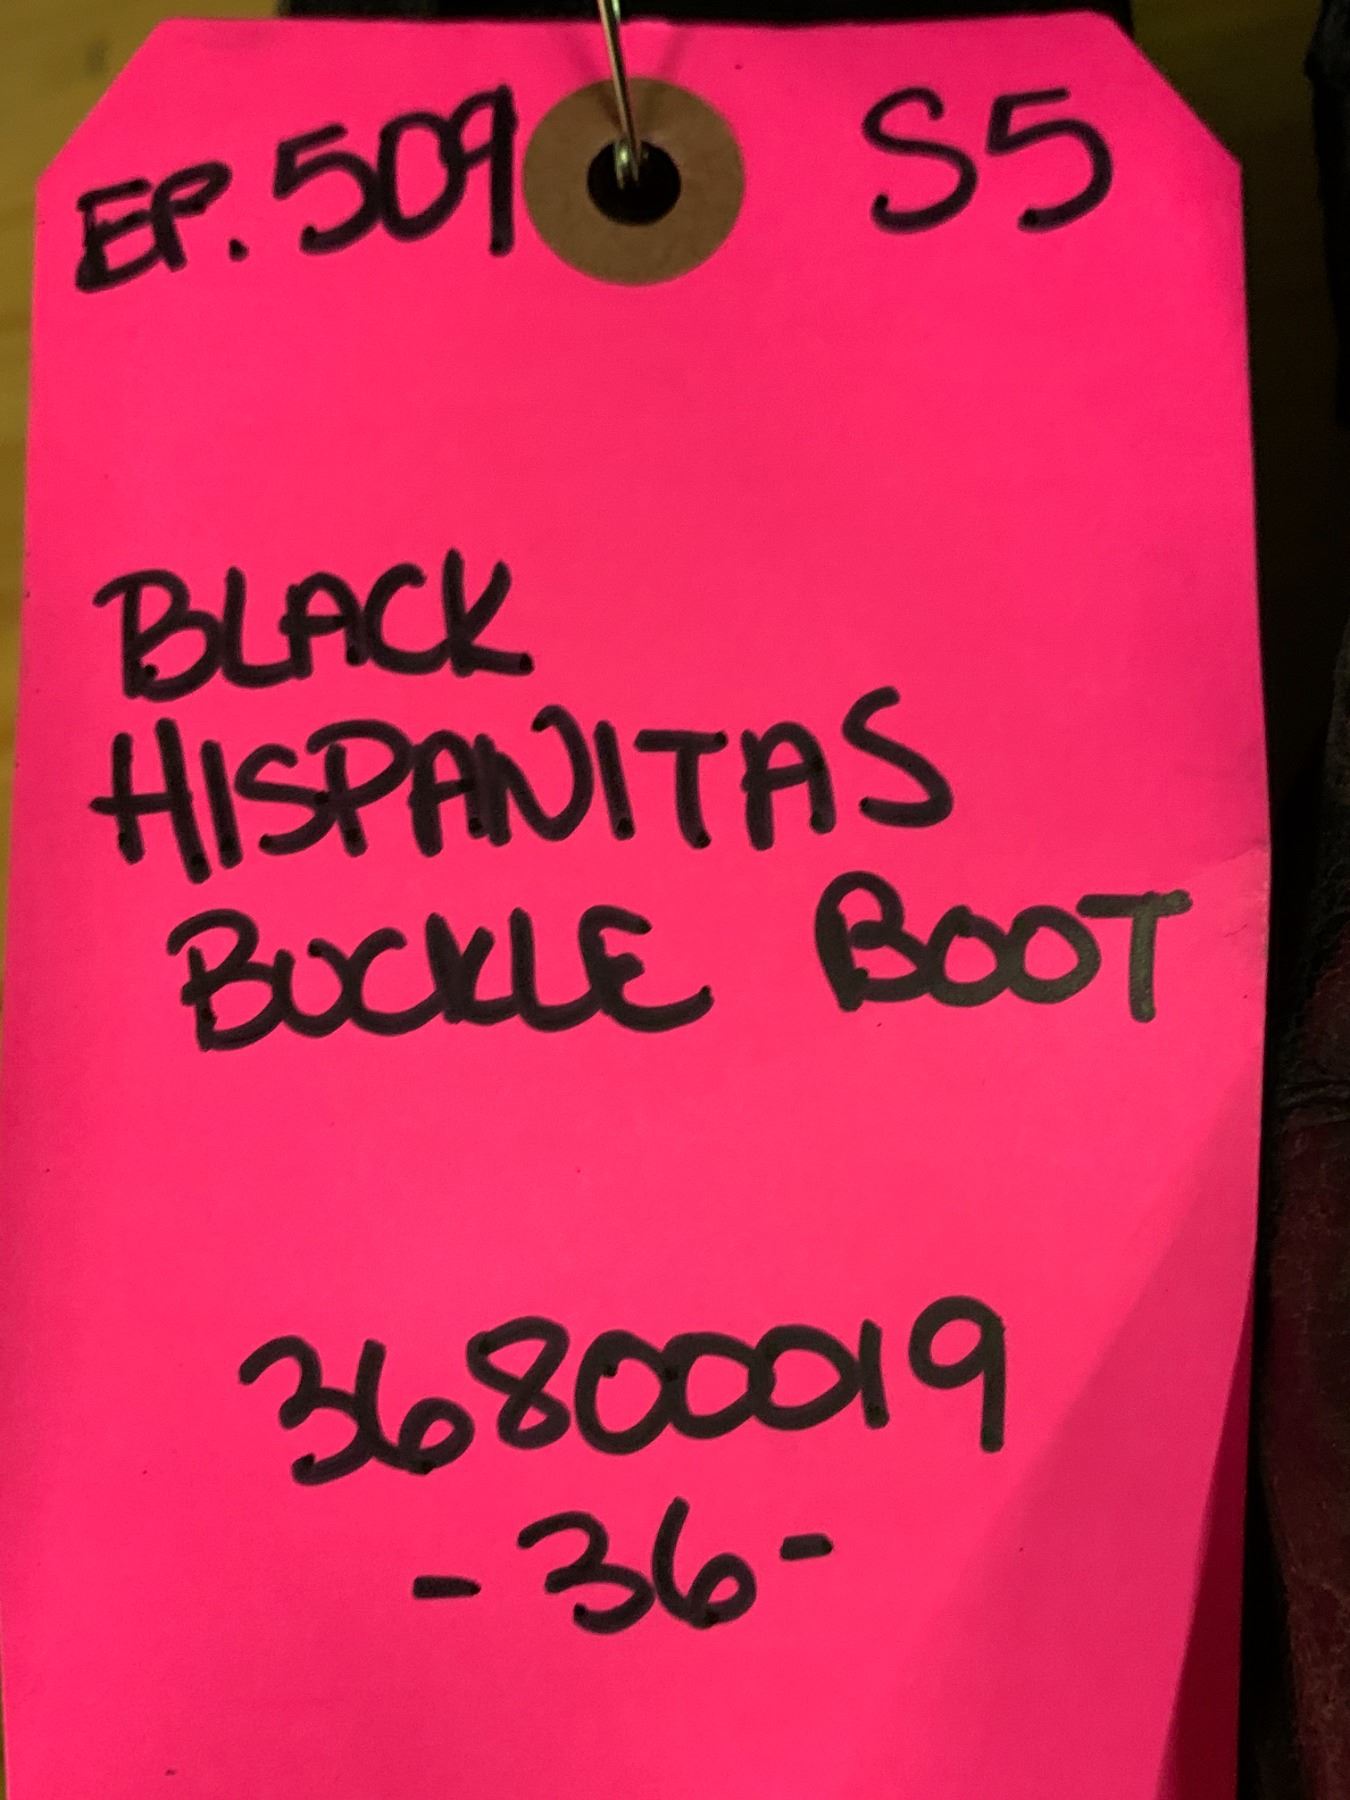 EP. 509 S5
BLACK
HISPANITAS
BUCKLE BOOT
36800019
-36-